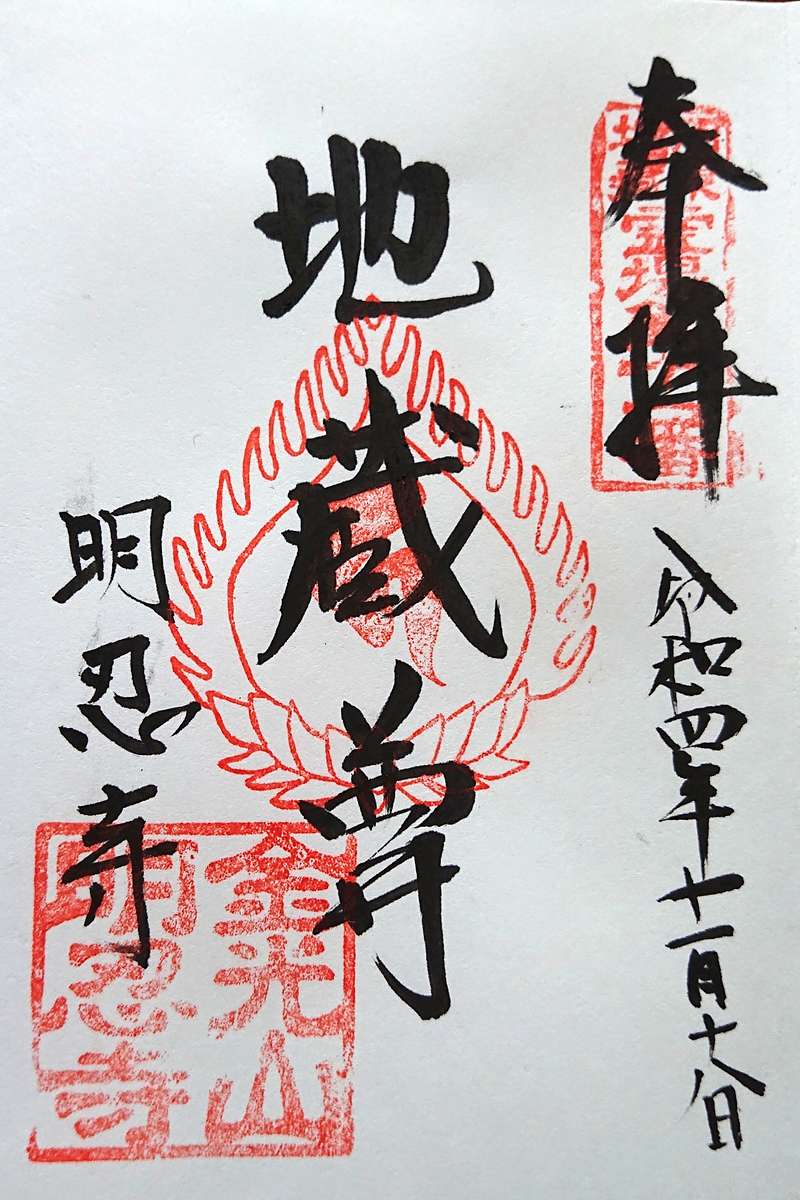 奉拝
地蔵霊場
番
令和四年十一月十八日
地蔵尊
明忍寺
金光山
明忍寺